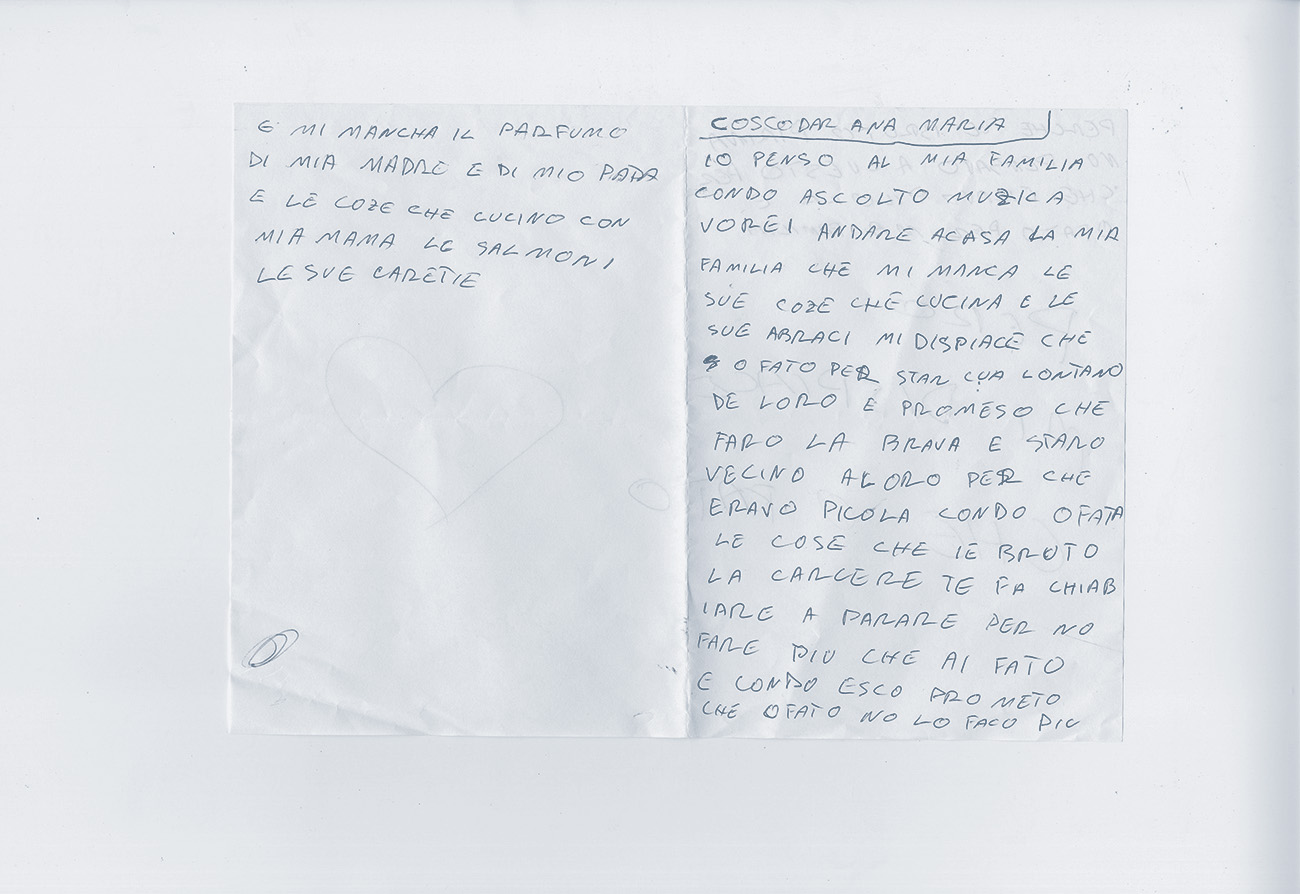 E MI MANCHA IL PARFUMO
DI MIA MADRE E DI MIO PAPA
E LE COZE CHE CUCINO CON
MIA MAMA LE SALMONI
LE SUE CARETIE
COSCODAR ANA MARIA
IO PENSO AL MIA FAMILIA
CONDO ASCOLTO MUZICA
VOREI ANDARE ACASA LA MIA
FAMILIA CHE MI MANCA LE
SUE COZE CHE CUCINA E LE
SUE ABRACI MI DISPIACE CHE
O FATO PER STAR CUA LONTANO
DE LORO E PROMESO CHE
FARO LA BRAVA E STARO
VECINO ALORO PER CHE
ERAVO PICOLA CONDO OFATA
LE COSE CHE IE BRUTO
LA CARCERE TE FA CHIAB
IARE A PARARE PER NO
FARE PIU CHE AI FATO
E CONDO ESCO PROMETO
CHE OFATO NO LO FACO PIU